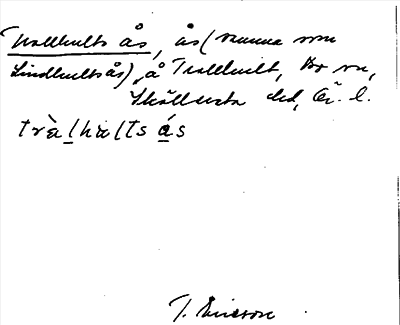 Trollhults ås, ås (samma som
Lindhultsås), å Trollhult, Bo sn,
Sköllersta hd, Ör. l.
tràlhàlts ás
T. Ericson